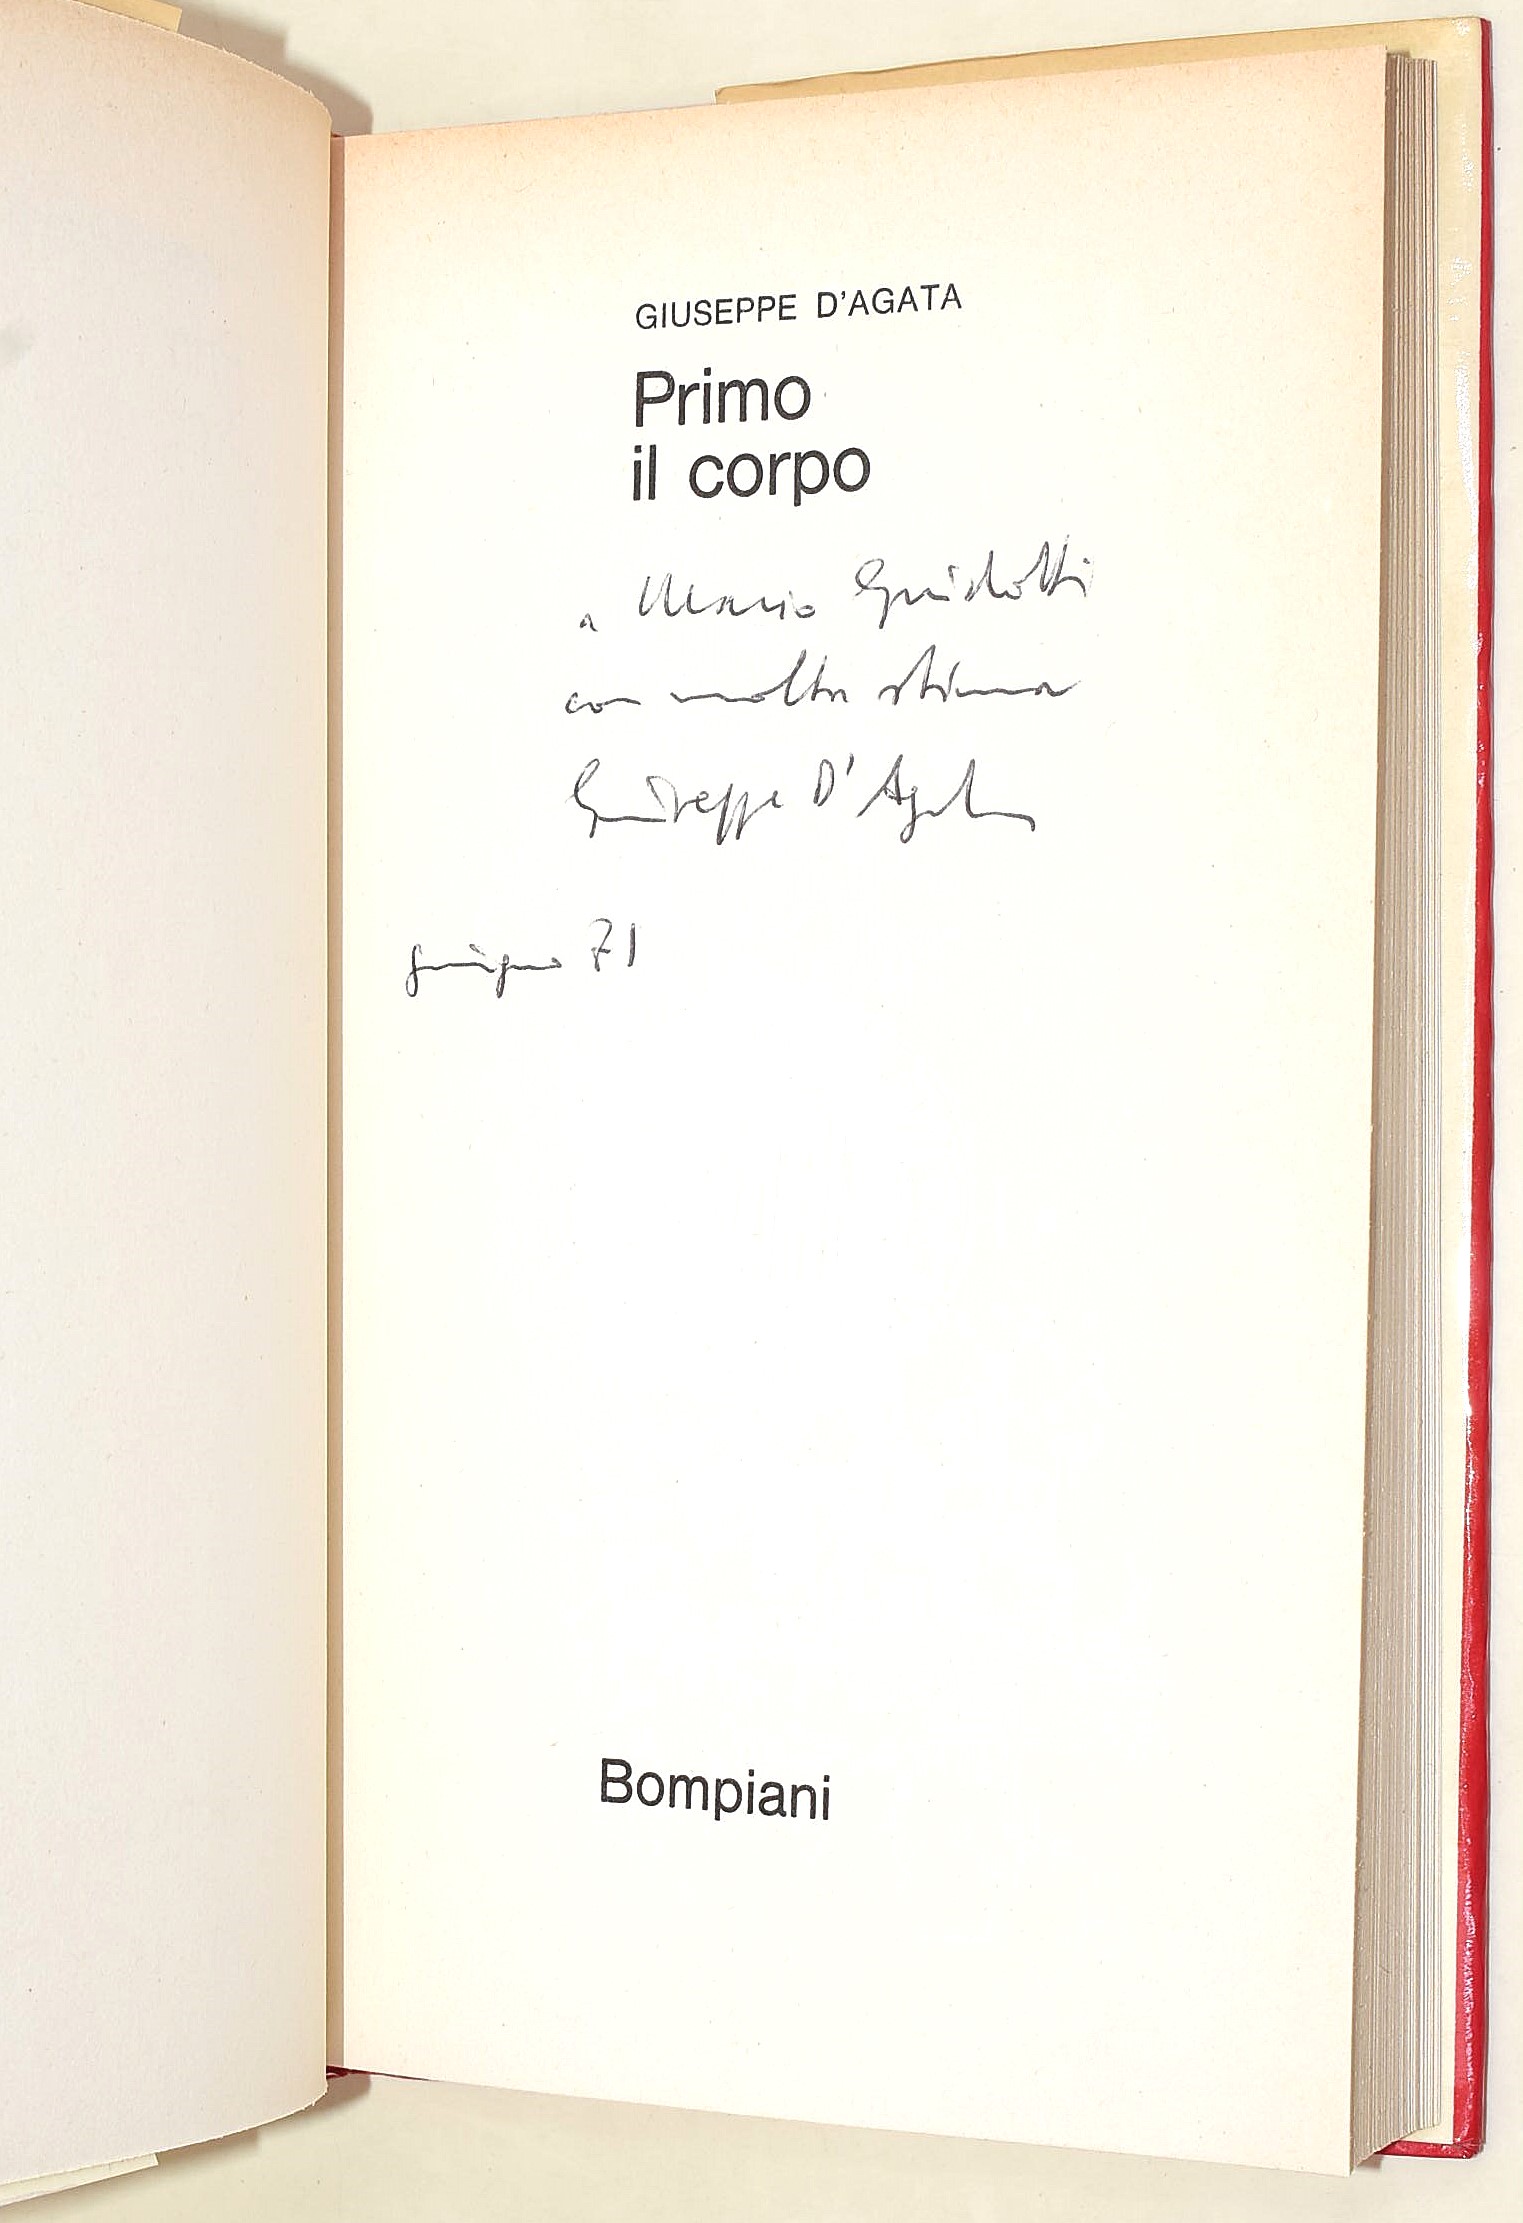 GIUSEPPE D'AGATA
Primo
il corpo
a Mario Guidotti
con molta stima
Giuseppe D'Agata
giugno 71
Bompiani